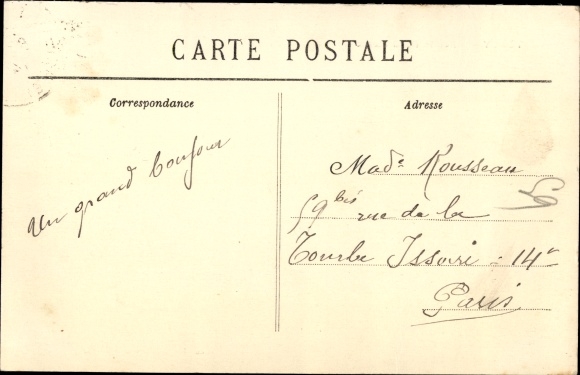 CARTE POSTALE
Correspondance
Un grand bonjour
Adresse
Made Rousseau
59 bis rue de la
Tombe Issoire - 14e
Paris
59